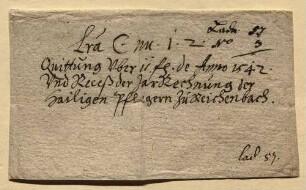 Lada 57
Lra C nu. 1. 2 No 3
Quittung Vber 11 fl. de Anno 1542.
Vnd Receß der Jar Rechnung der
Hailigen Pflegern Zu Reichenbach.
lad. 57.